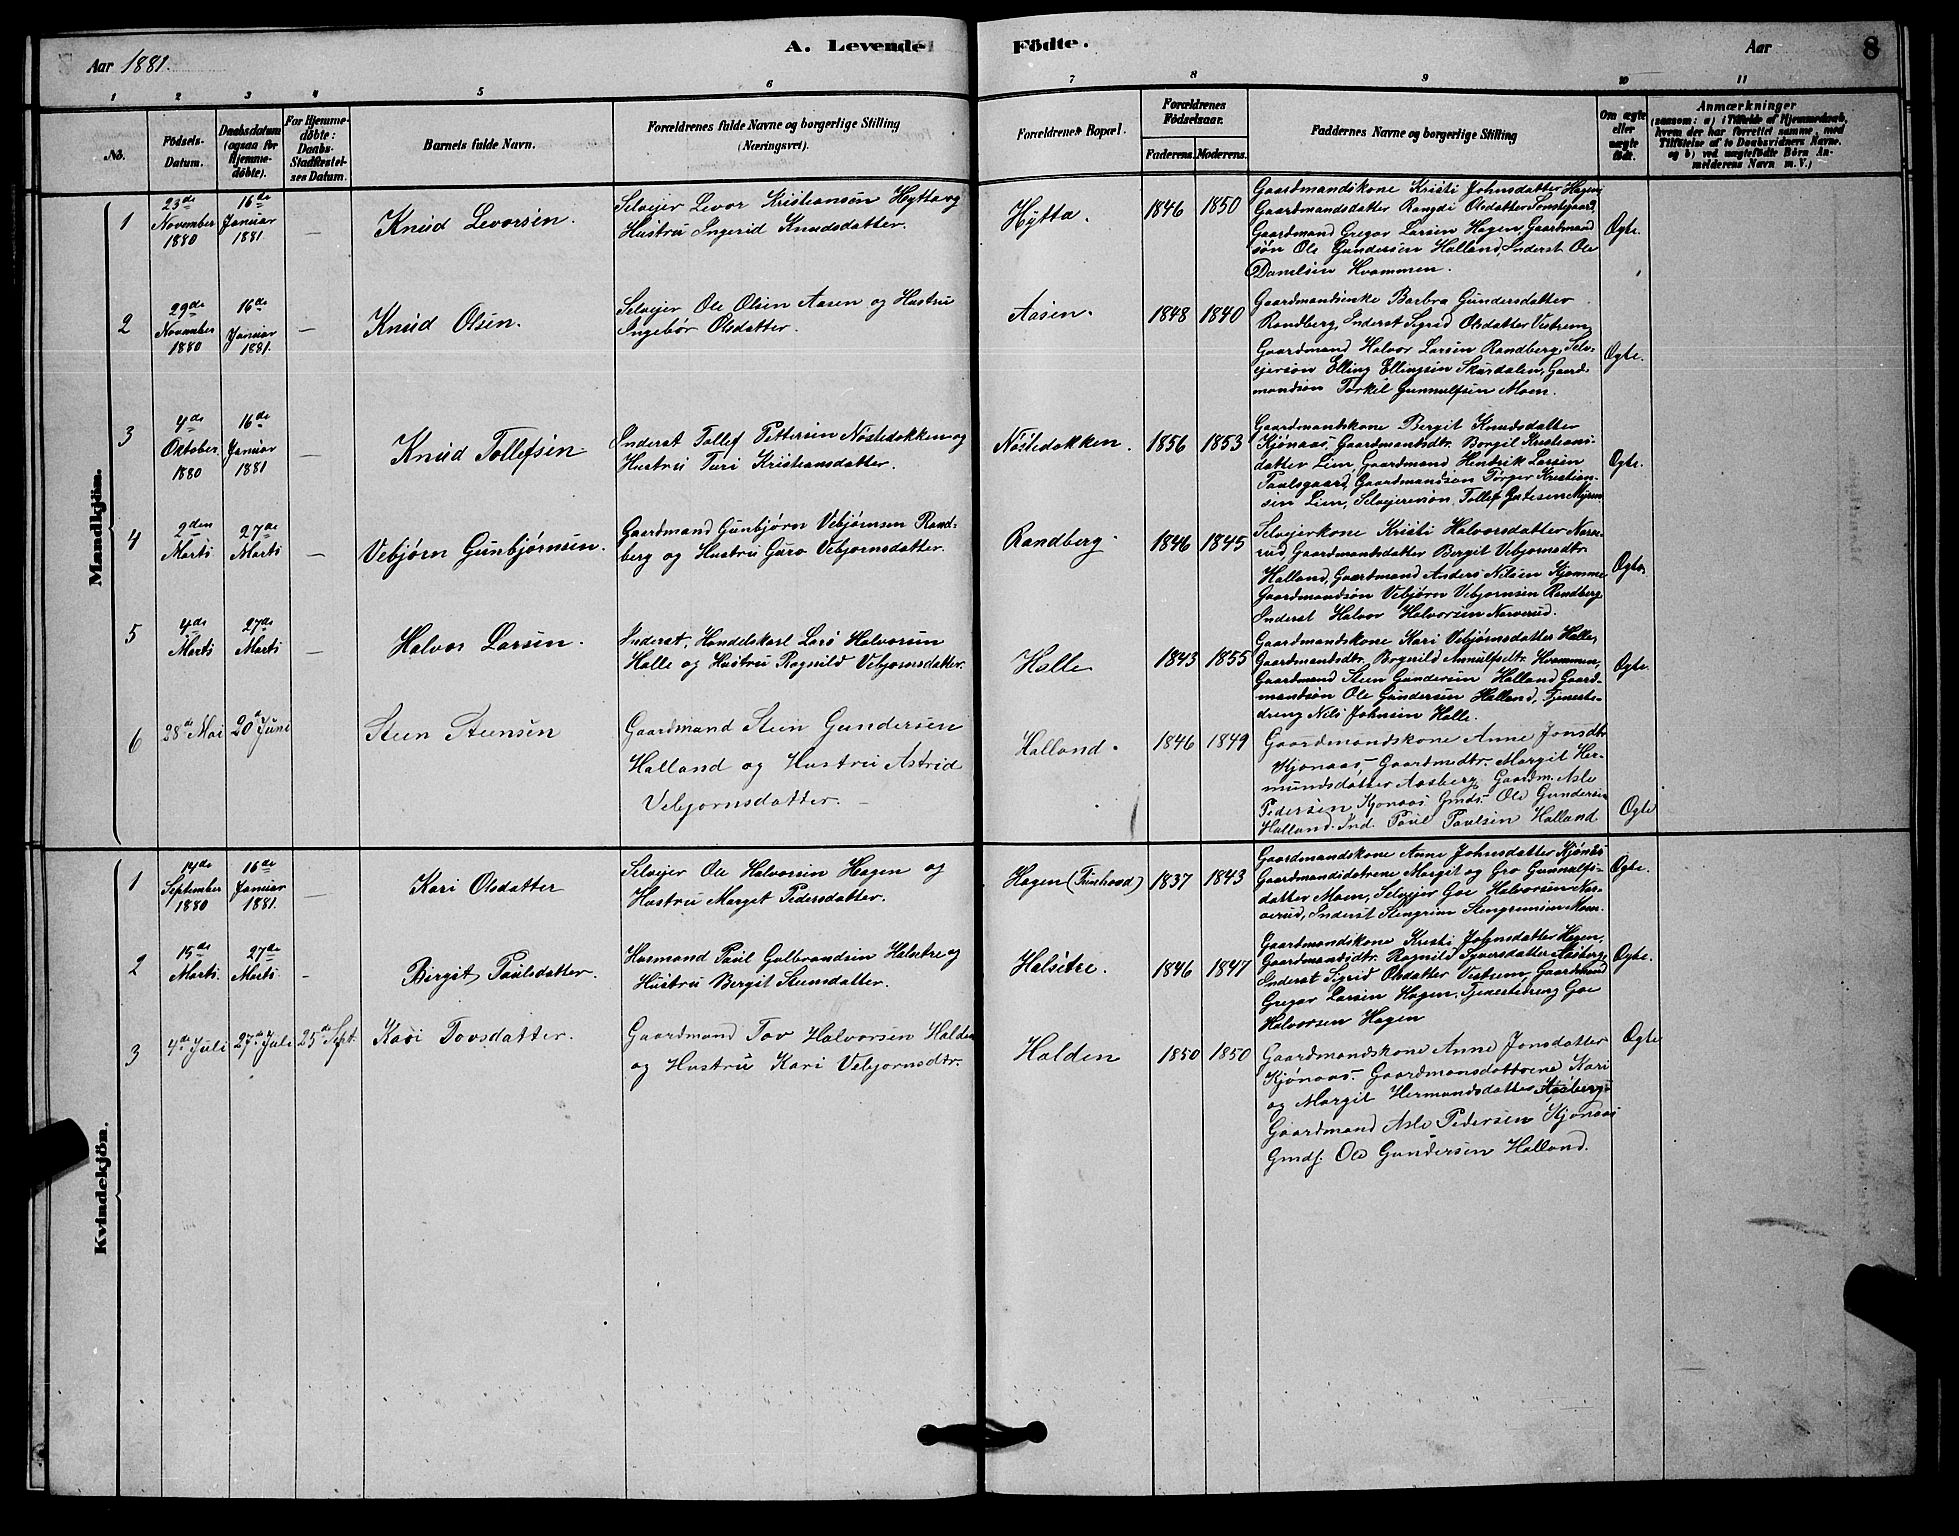 Aar 1881.
A. Levende
Födte.
Aar
8
1 2 3 4 5 6 7 8 9 10 11
No.
Födsels-
Datum.
Daabsdatum
(ogsaa for
Hjemme-
döbte).
For Hjemme-
döbte:
Daabs-
Stadfæstel-
ses Datum.
Barnets fulde Navn.
Forældrenes fulde Navne og borgerlige Stilling
(Næringsvei).
Forældrenes Bopæl.
Forældrenes
Födselsaar.
Faderens. Moderens.
Faddernes Navne og borgerlige Stilling
Om ægte
eller
uægte
födt.
Anmærkninger
(saasom: a) i Tilfælde af Hjemmedaab,
hvem der har forrettet samme, med
Tilföielse af to Daabsvidners Navne.
og b) ved uægtefödte Börn An-
melderens Navn m. V.)
Mandkjön.
1
23de
November
1880
16de
Januar
1881
—
Knud Levorsen.
Selveier Levor Kristiansen Hytta og
Hustru Ingerid Knudsdatter.
Hytta.
1846 1850
Gaardmandskone Kristi Johnsdatter Hagen
Gaardmandsdatter Rangdi Olsdatter
Gaardmand Gregar Larsen Hagen, Gaardmand
søn Ole Gundersen Halland, Inderst Ole
Danelsen Hvammen.
Ægte.
2
29de
November
1880
16de
Januar
1881.
—
Knud Olsen.
Selveier Ole Olsen Aasen og Hustru
Ingebør Olsdatter.
Aasen.
1848 1840
Gaardmandsenke Barbra Gundersdatter
Randberg, Inderst Sigrid Olsdatter Vestrem,
Gaardmand Halvor Larsen Randberg, Selv-
ejersøn Elling Ellingsen Skurdalen, Gaard-
mandsøn Torkel Gunnulfsen Moen.
Ægte.
3
4de
Oktober
1880
16de
Januar
1881
—
Knud Tollefsen
Inderst Tollef Pettersen Nøstedokken og
Hustru Turi Kristiansdatter.
Nøstedokken.
1856 1853
Gaardmandskone Bergit Knudsdatter
Kjønaas, Gaardmandsdtr. Borgil Kristians-
datter Lien, Gaardmand Hendrik Larsen
Paulsgaard, Gaardmandsøn Torger Kristian-
sen Lien, Selvejersøn Tollef
Ægte.
4
2den
Marts
27de
Marts
—
Vebjørn Gunbjørnsen.
Gaardmand Gunbjørn Vebjørnsen Rand-
berg og Hustru Guro Vebjørnsdatter.
Randberg.
1846 1845
Selvejerkone Kristi Halvorsdatter Narve-
rud, Gaardmandsdatter Bergit Vebjørnsdtr.
Halland, Gaardmand Anders Nilsen Kjomme
Gaardmandsøn Vebjørn Vebjørnsen Randberg
Inderst Halvor Halvorsen Narverud.
Ægte
5
4de
Marts
27de
Marts
—
Halvor Larsen.
Inderst, Handelskarl Lars Halvorsen
Halle og Hustru Ragnild Vebjørnsdatter.
Halle
1843 1855
Gaardmandskone Kari Vebjørnsdatter Halle,
Gaardmandsdtr. Borgerild Annulfsdtr. Hvammen,
Gaardmand Steen Gundersen Halland, Gaard-
mandsøn Ole Gundersen Halland, Tjeneste-
dreng Nils Johnsen Halle.
Ægte.
6
28de Mai
20de Juni
Steen Steensen
Gaardmand Steen Gundersen
Halland og Hustru Astrid
Vebjørnsdatter. —
Halland.
1846 1849
Gaardmandskone Anne Jonsdtr
Kjonaas, Gaardmdtr. Margit Her-
mundsdatter Aasberg, Gaardm. Asle
Pedersen Kjonaas Gmds. Ole Gundersen
Halland. Ind. Paul Paulsen Halland
Ægte
Kvindekjön.
1
14de
September
1880
16de
Januar
1881.
—
Kari Olsdatter
Selveier Ole Halvorsen Hagen og
Hustru Marget Pedersdatter.
Hagen
1837 1843
Gaardmandskone Anne Johnsdatter Kjønås
Gaardmandsdøtrene Margit og Gro Gunnulfs-
datter Moen, Selvejer Goe Halvorsen Nar-
verud, Inderst Stengrim Stengrimsen Moen.
Ægte.
2
15de
Marts
27de
Marts.
—
Bergit Paulsdatter.
Husmand Paul Gulbrandsen Halsetre og
Hustru Bergit Steensdatter.
Halsetre.
1846 1847
Gaardmandskone Kristi Johnsdatter Hagen,
Gaardmandsdtr. Ragnild Syversdatter Aasberg,
Inderst Sigrid Olsdatter Vestrem, Gaardmand
Gregar Larsen Hagen, Tjenestedreng Goe
Halvorsen Hagen
Ægte.
3
4de Juli
27de Juli
25de Sept.
Kari Tovsdatter.
Gaardmand Tov Halvorsen Halden
og Hustru Kari Vebjornsdtr.
Halden
1850 1850
Gaardmandskone Anne Jonsdatter
Kjønaas. Gaardmansdøttrene Kari
og Margit Hermundsdatter Aasberg
Gaardmand Asle Pedersen Kjønaas
Gmds. Ole Gundersen Halland.
Ægte